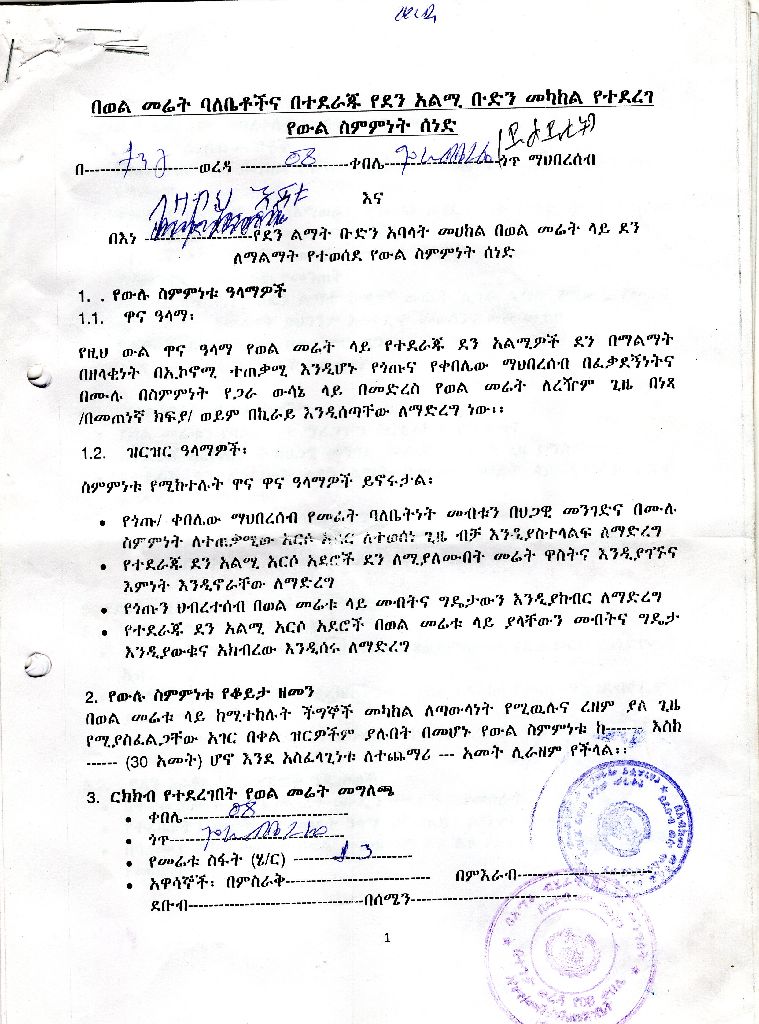 በወል መሬት ባለቤቶችና በተደራጁ የደን አልሚ ቡድን መካከል የተደረገ
የውል ስምምነት ሰነድ
በ---------------ወረዳ ----------- 08 ---------ቀበሌ---------------ጎጥ ማህበረሰብ
እና
በእነ ----------------የደን ልማት ቡድን አባላት መሀከል በወል መሬት ላይ ደን
ለማልማት የተወሰደ የውል ስምምነት ሰነድ
1. . የውሉ ስምምነቱ ዓላማዎች
1.1. ዋና ዓላማ፡
የዚህ ውል ዋና ዓላማ የወል መሬት ላይ የተደራጁ ደን አልሚዎች ደን በማልማት
በዘላቂነት በኢኮኖሚ ተጠቃሚ እንዲሆኑ የጎጡና የቀበሌው ማህበረሰብ በፈቃደኝነትና
በሙሉ በስምምነት የጋራ ውሳኔ ላይ በመድረስ የወል መሬት ለረዥም ጊዜ በነጻ
/በመጠነኛ ክፍያ/ ወይም በኪራይ እንዲሰጣቸው ለማድረግ ነው፡፡
1.2. ዝርዝር ዓላማዎች፡
ስምምነቱ የሚከተሉት ዋና ዋና ዓላማዎች ይኖሩታል፡
• የጎጡ/ ቀበሌው ማህበረሰብ የመሬት ባለቤትነት መብቱን በህጋዊ መንገድና በሙሉ
ስምምነት ለተጠቃሚው አርሶ አደር ለተወሰነ ጊዜ ብቻ እንዲያስተላልፍ ለማድረግ
• የተደራጁ ደን አልሚ አርሶ አደሮች ደን ለሚያለሙበት መሬት ዋስትና እንዲያገኙና
እምነት እንዲኖራቸው ለማድረግ
• የጎጡን ህብረተሰብ በወል መሬቱ ላይ መብትና ግዴታውን እንዲያከብር ለማድረግ
• የተደራጁ ደን አልሚ አርሶ አደሮች በወል መሬቱ ላይ ያላቸውን መብትና ግዴታ
እንዲያውቁና አክብረው እንዲሰሩ ለማድረግ
2. የውሉ ስምምነቱ የቆይታ ዘመን
በወል መሬቱ ላይ ከሚተከሉት ችግኞች መካከል ለጣውላነት የሚዉሉና ረዘም ያለ ጊዜ
የሚያስፈልጋቸው አገር በቀል ዝርዎችም ያሉበት በመሆኑ የውል ስምምነቱ ከ------- እስከ
------ (30 አመት) ሆኖ እንደ አስፈላጊነቱ ለተጨማሪ --- አመት ሲራዘም የችላል፡፡
3. ርክክብ የተደረገበት የወል መሬት መግለጫ
• ቀበሌ------- 08 --------------
• ጎጥ----------------------
• የመሬቱ ስፋት (ሄ/ር) ------- 13 -------
• አዋሳኞች፡ በምስራቅ--------------------- በምእራብ--------------------
ደቡብ-------------------------በሰሜን------------------------
1